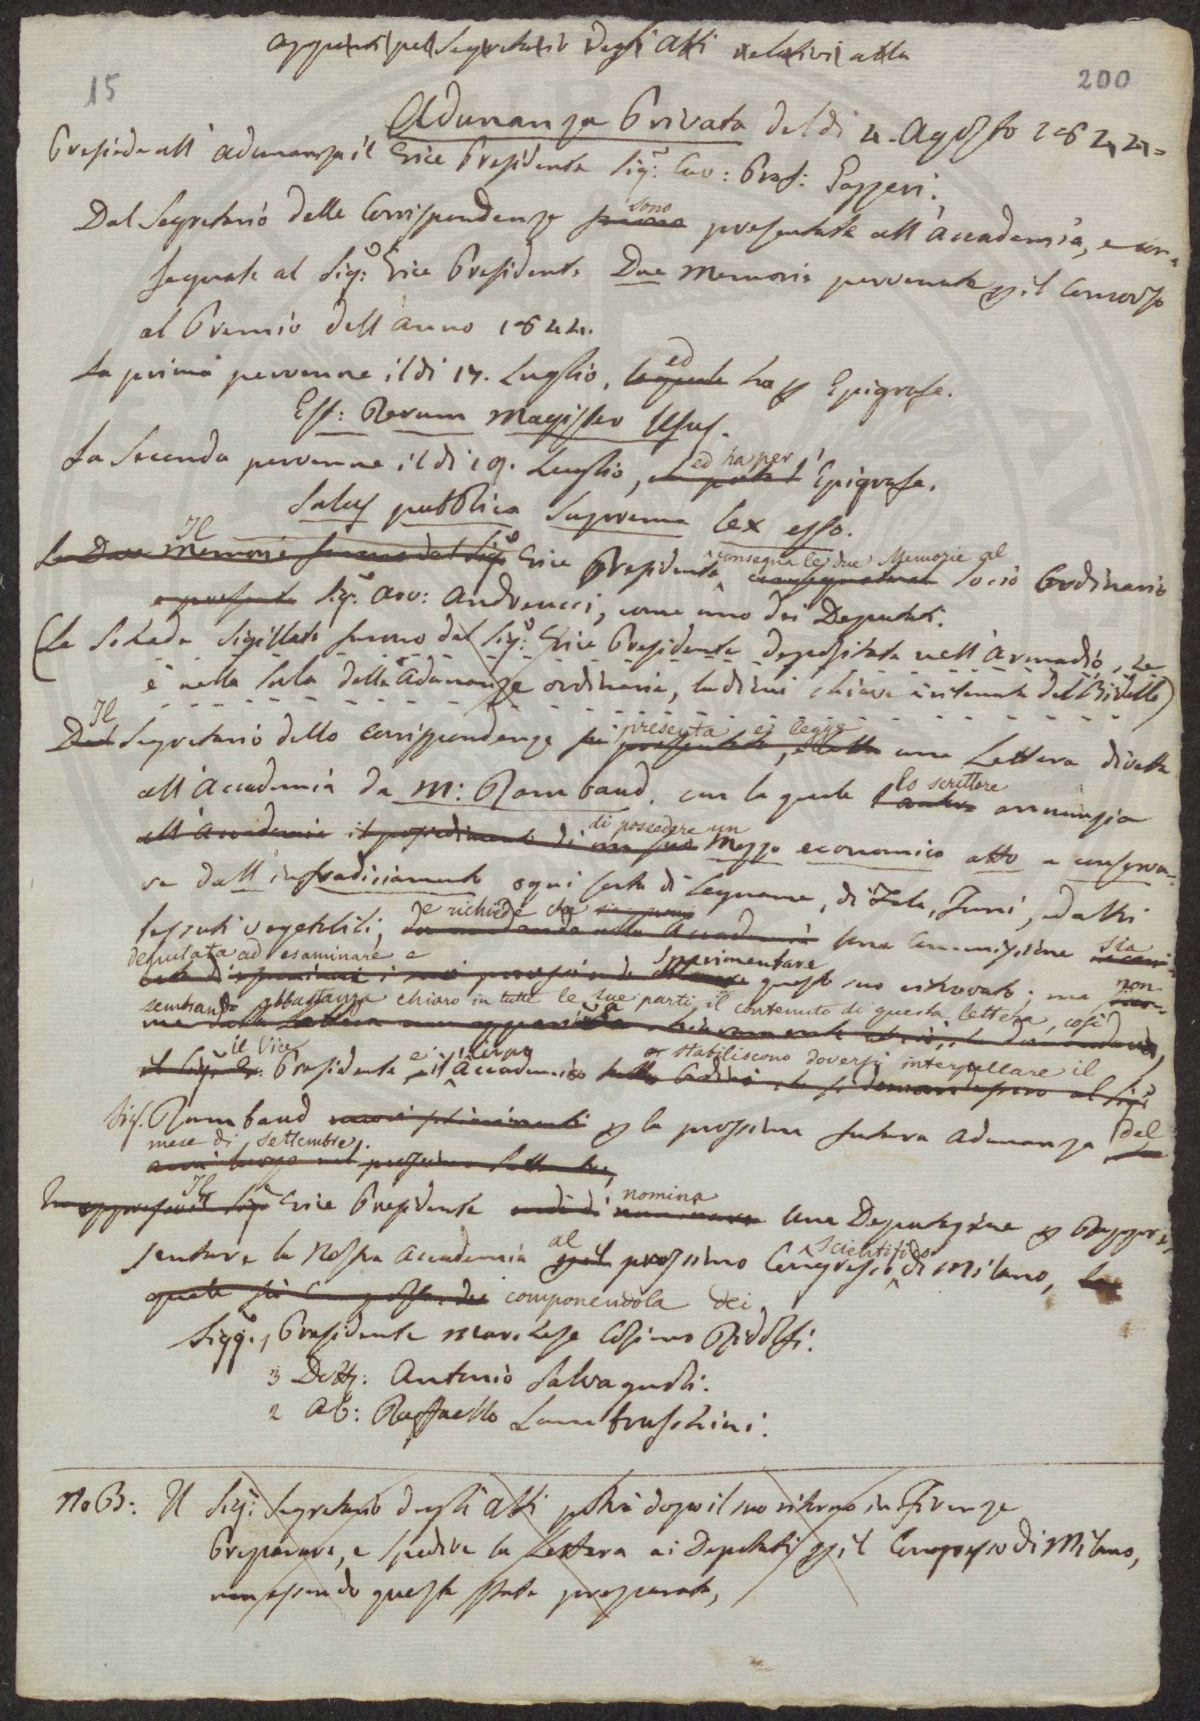 appunti pel Segretario degli Atti relativi alla
15
200
Adunanza Privata del dì 4. Agosto 1844.
Presiede all'adunanza il Vice Presidente Sig.r Cav: Prof: Gazzeri.
Dal Segretario delle Corrispondenze sono presentate all'Accademia, e con=
segnate al Sig.r Vice Presidente Due Memorie pervenute per il Concorso
al Premio dell'Anno 1844.
La prima pervenne il dì 17. Luglio, ed ha per Epigrafe.
Est: Rerum Magister Usus.
La Seconda pervenne il dì 19. Luglio, ed ha per l'Epigrafe.
Salus pubblica Suprema lex esto.
Il
Le Due Memorie furono dal Sig.r Vice Presidente consegna le due Memorie al Socio Ordinario
e presente Sig.r Avv: Andreucci, come uno dei Deputati.
(Le Schede Sigillate furono dal Sig.r Vice Presidente depositate nell'Armadio, che
è nella Sala delle Adunanze ordinarie, la di cui chiave è ritenuta dal Bidello)
Il
Dal Segretario delle Corrispondenze presenta e legge una Lettera diretta
all'Accademia da M: Rambaud. con la quale lo scrittore annunzia
all'Accademia il possedimento di di possedere un Mezzo economico atto a conserva=
re dall'infradiciamento ogni sorta di Legname, di Tele, Funi, ed altri
tessuti vegetabili, e richiede che una Commissione sia
deputata ad esaminare e sperimentare questo suo ritrovato; ma non
sembrando abbastanza chiaro in tutte le sue parti il contenuto di questa lettera, così
il Vice Presidente e l'Accademia stabiliscono doversi interpellare il
Sig. Rambaud per la prossima futura Adunanza del
mese di Settembre.
Il Vice Presidente nomina una Deputazione per Rappre=
sentare la Nostra Accademia al prossimo Congresso scientifico di Milano,
componendola dei
Sigg.ri 1 Presidente Marchese Cosimo Ridolfi.
3 Dott: Antonio Salvagnoli.
2 Ab: Raffaello Lambruschini.
No B: Il Sig.r Segretario degli Atti potrà dopo il suo ritorno in Firenze
Preparare, e spedire la Lettera ai Deputati per il Congresso di Milano,
non essendo questa stata preparata,